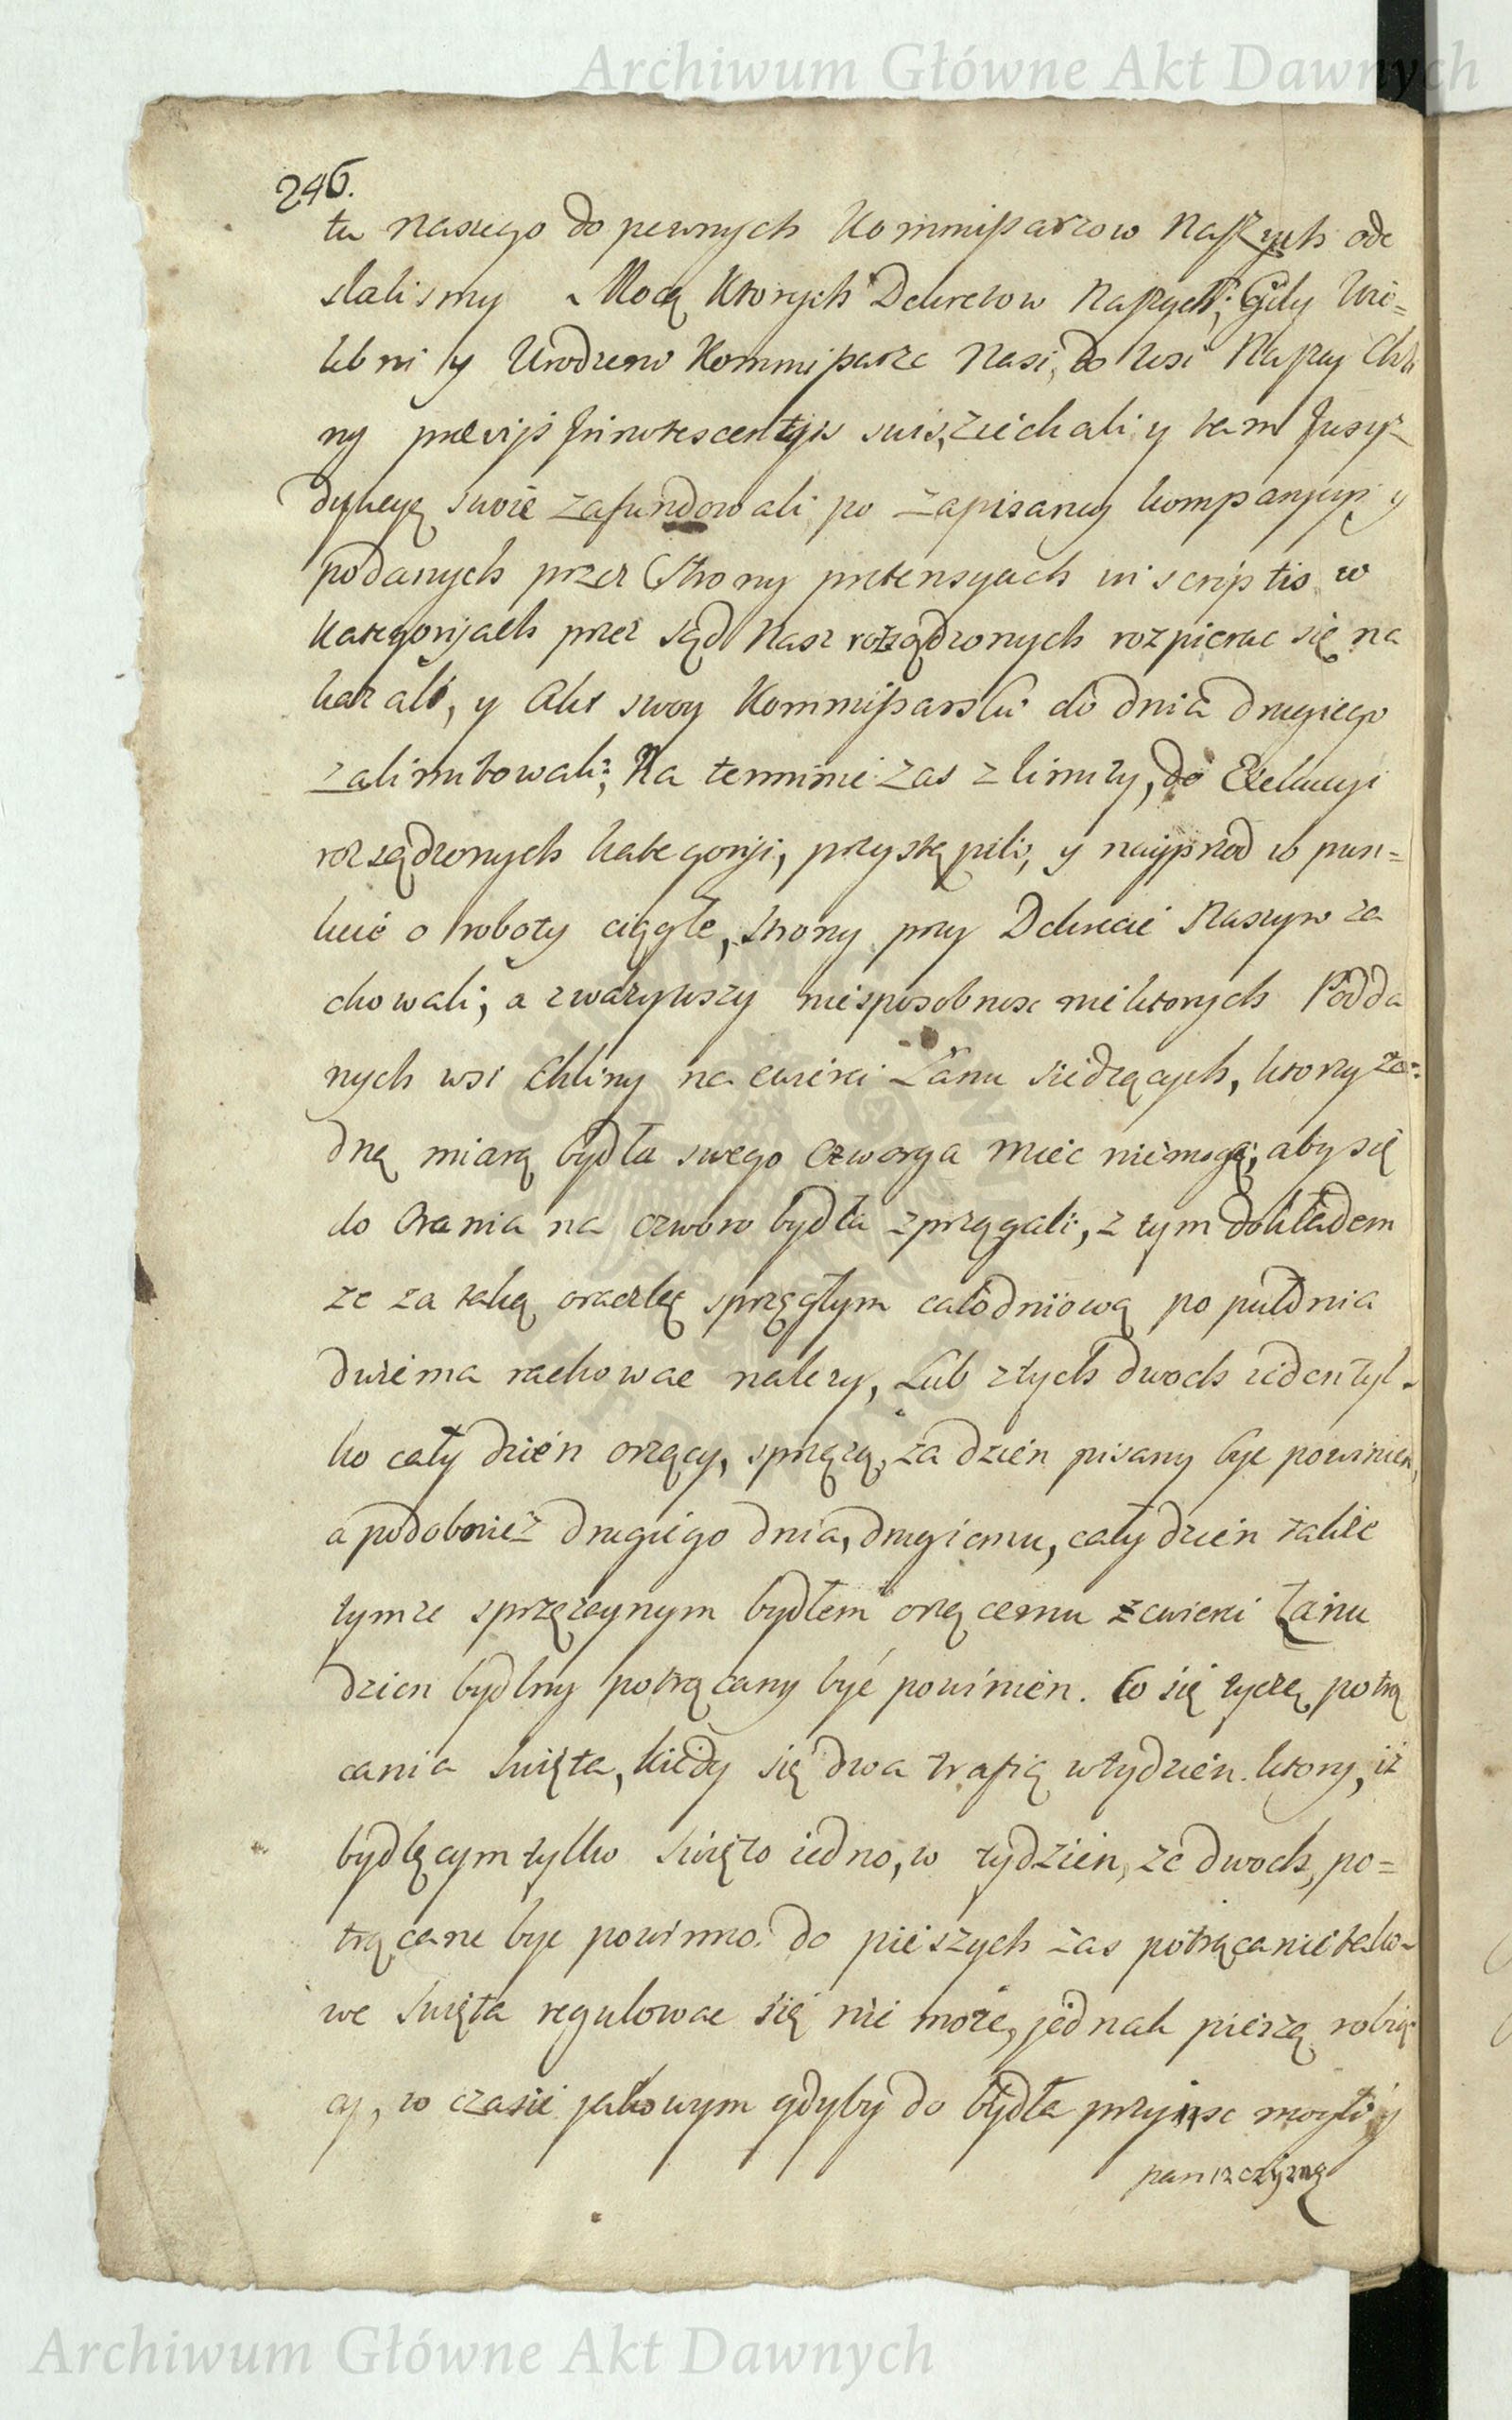 Archiwum Główne Akt Dawnych
246.
tu naszego do pewnych Kommißarzow Naszych ode
slalismy Mocą Ktorych Dekretow Naszych; Gdy Wie=
lebni y Urodzeni Kommißarze Nasi, do wsi Naszey Chli
ny prævijs Innotescentijs suis, ziechali y tam Jusyz
dykcyę swoie zafundowali po zapisaney kompanycyi y
podanych przez Strony pretensyach in scriptis w
Kategoryach przez sąd Nasz rozsądzonych rozpierac się na
kazali, y Akt swoy Kommißarski do dnia drugiego
zalimitowali; Na terminie zas z limity, do Exekucyi
rozsądzonych kategoryi, przystąpili, y nayprzod w pun=
kcie o roboty ciągłe, strony przy Dekrecie Naszym za
chowali; a zwazywszy niesposobnosc niektorych Podda
nych wsi Chliny na cwierci Łanu siedzących, ktorzy za=
dną miarą bydła swego czworga miec niemogą; aby się
do Orania na czworo bydła zprzągali, z tym dokładem
ze za taką oraczkę sprzęgłym całodniową po puł dnia
dwiema rachowac nalezy, Lub z tych dwoch ieden tyl-
ko cały dzień orzący, sprzęzą, za dzień pisany byc powinien,
a podobniez drugiego dnia, drugiemu, cały dzień także
tymze sprzęzaynym bydłem orzącemu z cwierci Łanu
dzien bydlny potrącany być powinien. Co się tyczę potrą
cania swięta, kiedy się dwa trafią w tydzień ktory, iż
bydlęcym tylko swięto iedno, w tydzien, ze dwoch, po=
trącane byc powinno. do pieszych zas potrącanie tako-
we swięta regulowac się nie może, jednak pieszą robią
cy, w czasie jakowym gdyby do bydła przyisc mogli y
panszczyzną
Archiwum Główne Akt Dawnych